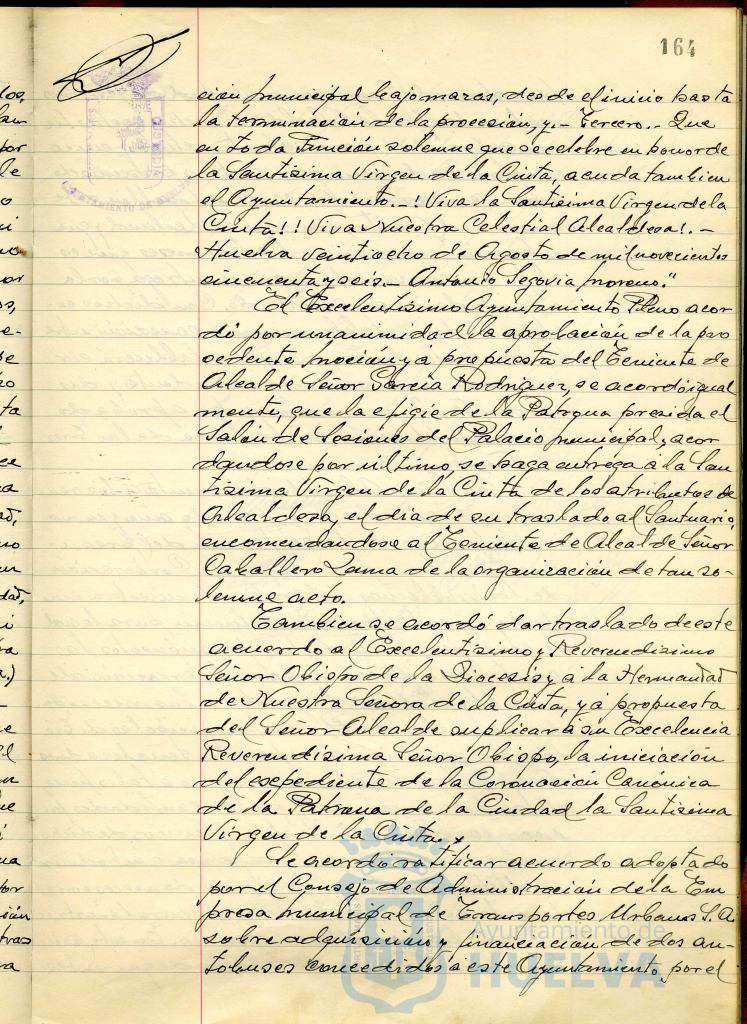 164
ción municipal bajo mazas, desde el inicio hasta
la terminación de la procesión, y.- Tercero.- Que
en toda Función solemne que se celebre en honor de
la Santísima Virgen de la Cinta, acuda tambien
el Ayuntamiento.- ¡Viva la Santísima Virgen de la
Cinta!! Viva Nuestra Celestial Alcaldesa!.-
Huelva veintiocho de Agosto de mil novecientos
cincuenta y seis.- Antonio Segovia Moreno."
El Excelentísimo Ayuntamiento Pleno acor
dó por unanimidad la aprobación de la pro
cedente moción y á propuesta del Teniente de
Alcalde Señor García Rodríguez, se acordó igual
mente, que la efigie de la Patrona presida el
Salón de Sesiones del Palacio municipal, acor
dandose por último, se haga entrega á la San
tísima Virgen de la Cinta de los atributos de
Alcaldesa, el dia de su traslado al Santuario,
encomendandose al Teniente de Alcalde Señor
Caballero de la organización de tan so-
lemne acto.
Tambien se acordó dar traslado de este
acuerdo al Excelentísimo y Reverendísimo
Señor Obispo de la Diocesis y á la Hermandad
de Nuestra Señora de la Cinta, y á propuesta
del Señor Alcalde suplicar á su Excelencia
Reverendísima Señor Obispo, la iniciación
del expediente de la Coronación Canónica
de la Patrona de la Ciudad la Santísima
Virgen de la Cinta.
Se acordó ratificar acuerdo adoptado
por el Consejo de Administración de la Em
presa municipal de Transportes Urbanos S.A.
sobre adquisición y financiación de dos au-
tobuses concedidos a este Ayuntamiento por el
Ayuntamiento de
HUELVA